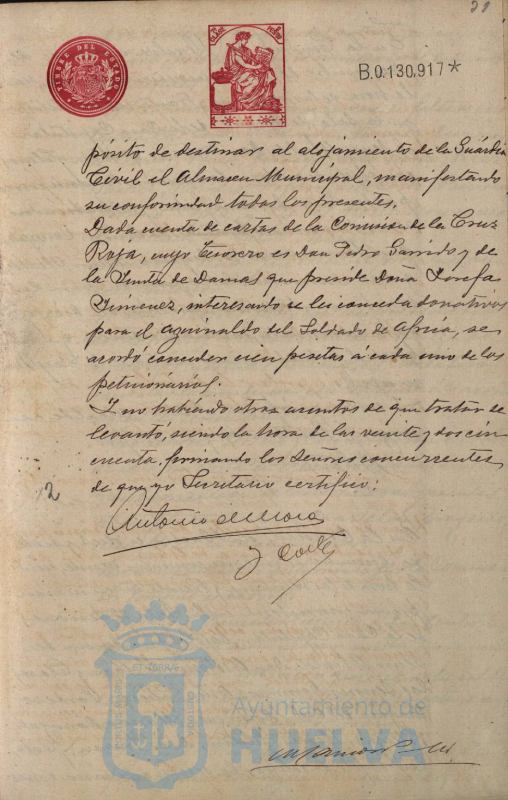 TIMBRE DEL ESTADO
B.0.130,917*
pósito de destinar al alojamiento de la Guardia
Civil el Almacen Municipal, manifestando
su conformidad todos los presentes.
Dada cuenta de cartas de la Comision de la Cruz
Roja, cuyo Tesorero es Don Pedro Garrido y de
la Junta de Damas que preside Doña Josefa
Jimenez, interesando se les conceda donativos
para el aguinaldo del Soldado de Africa, se
acordó conceder cien pesetas á cada uno de los
peticionarios.
Y no habiendo otros asuntos de que tratar se
levantó, siendo la hora de las veinte y dos cin
cuenta, firmando los Señores concurrentes
de que yo Secretario certifico:
Antonio de Mora
Ayuntamiento de
HUELVA